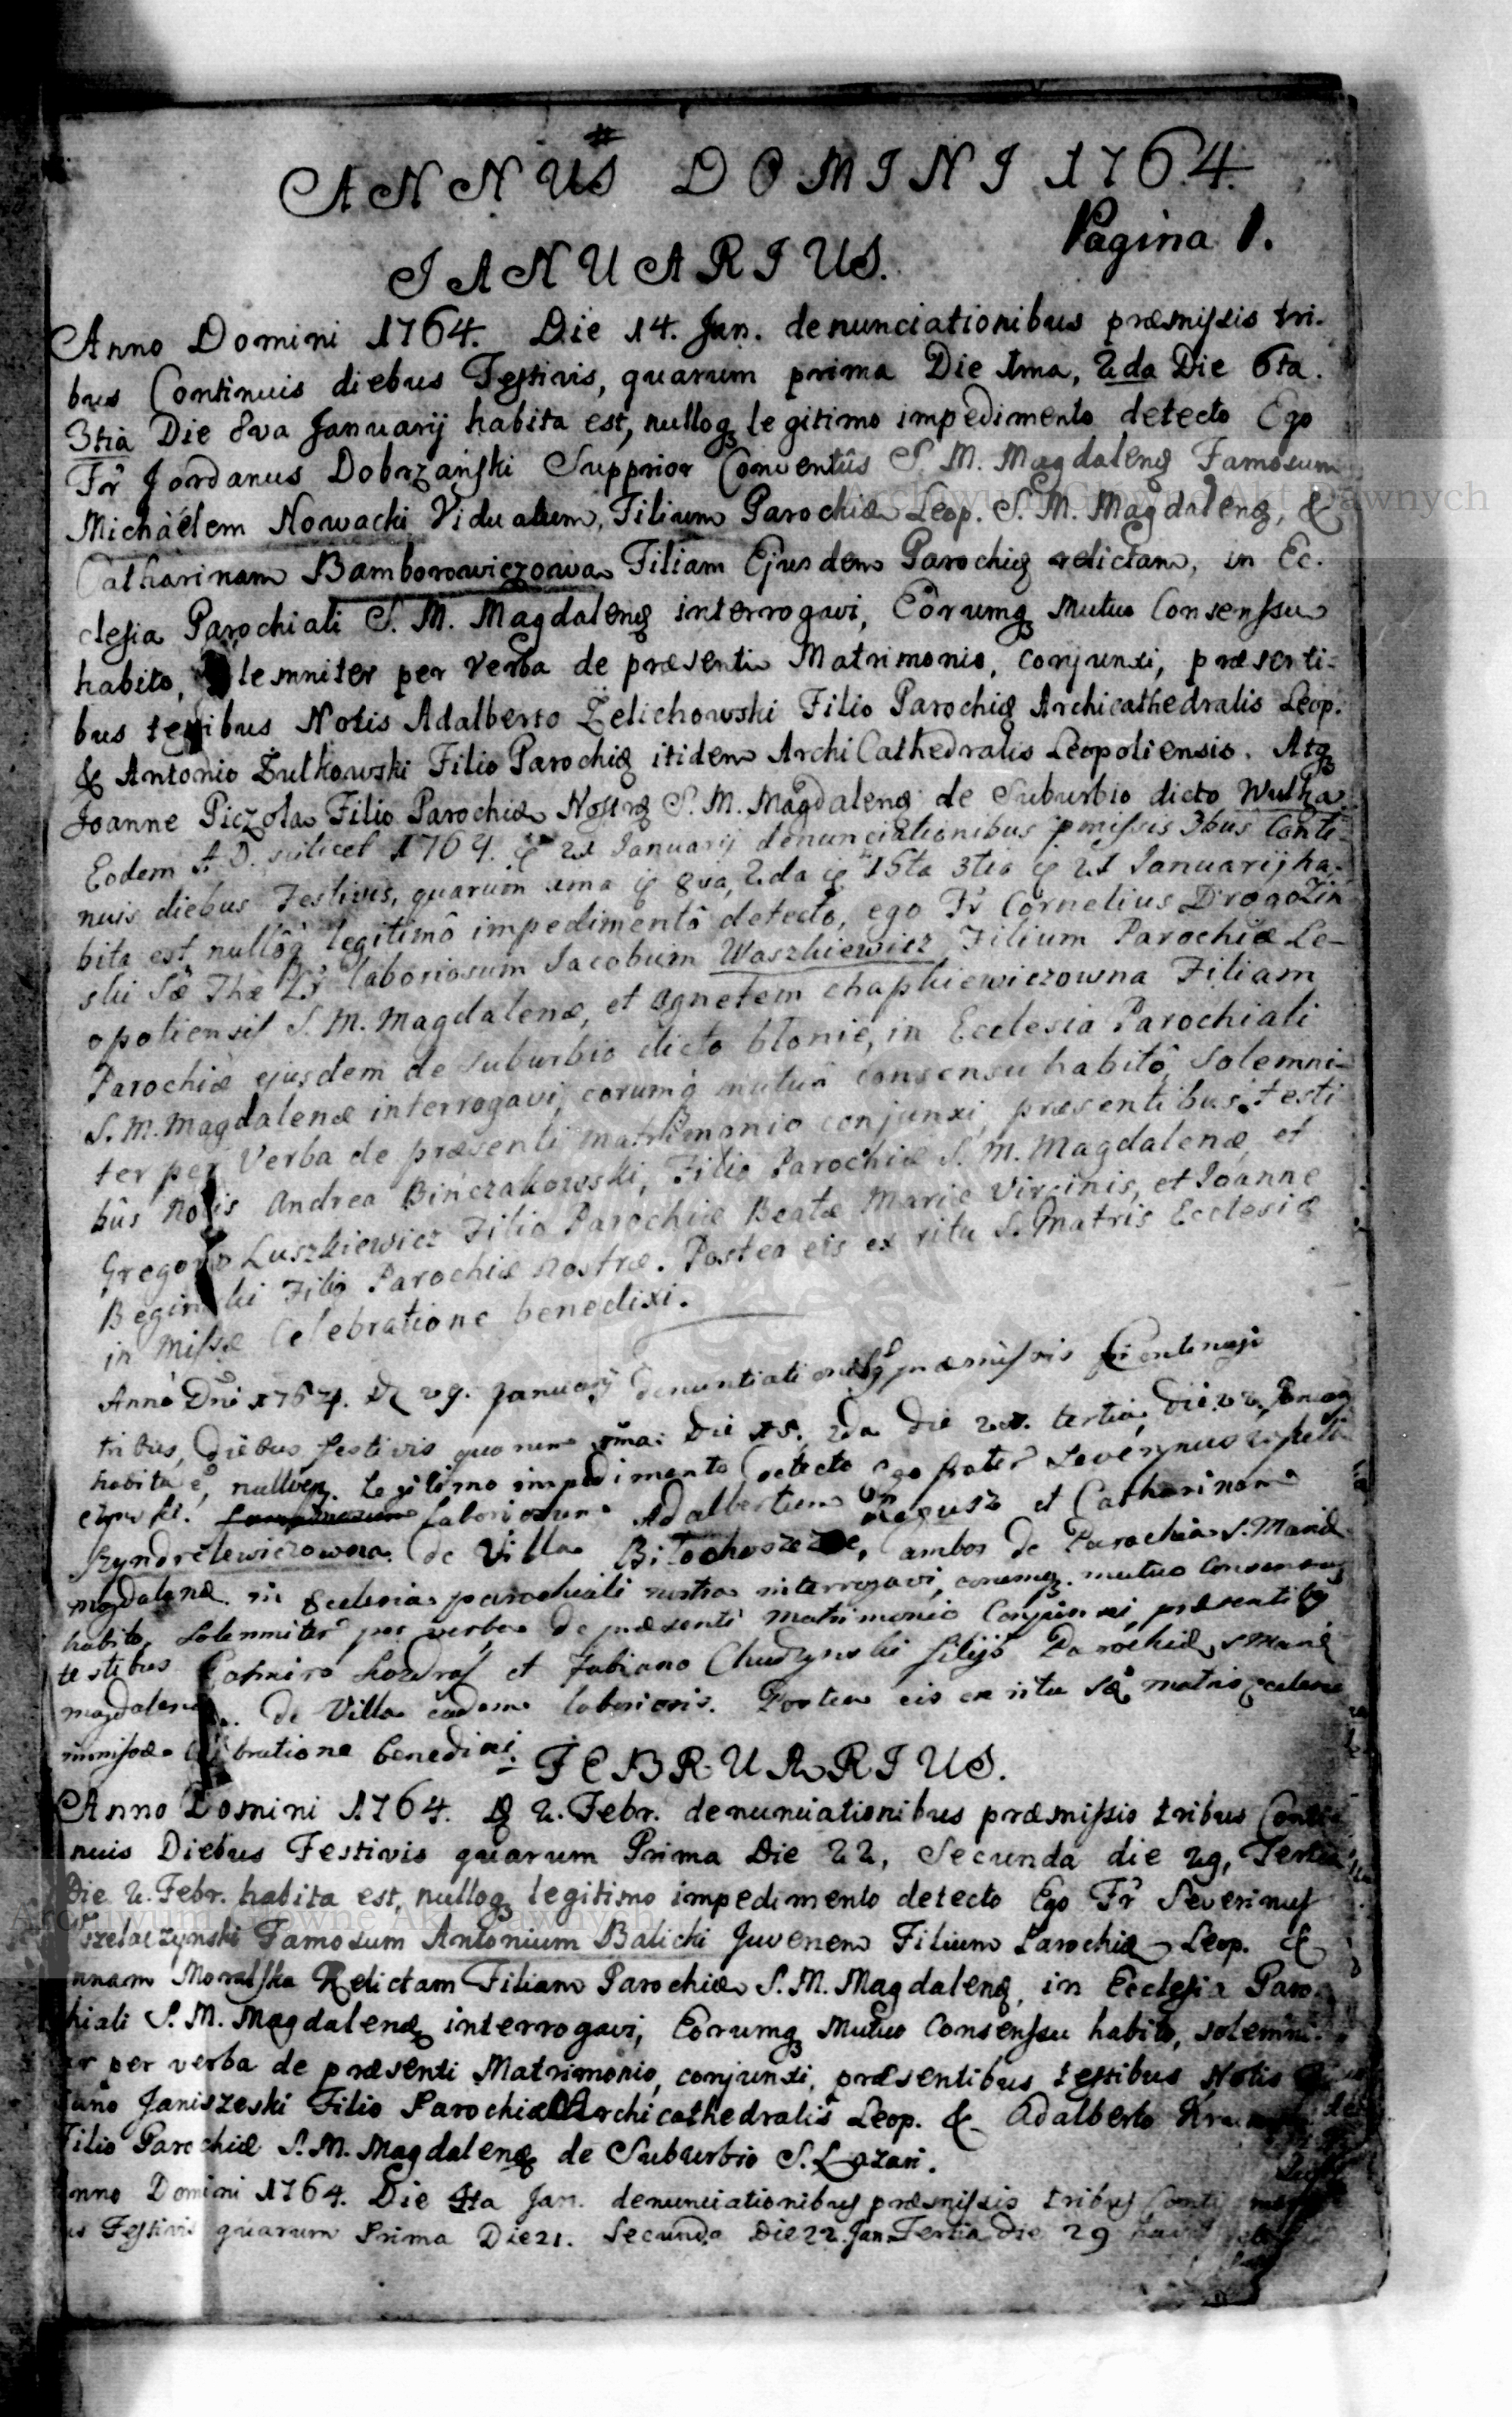 ANNUS DOMINI 1764.
Pagina 1.
JANUARIUS.
Anno Domini 1764. Die 14. Jan. denunciationibus præmissis tri-
bus Continuis diebus Festivis, quarum prima Die 1ma, 2da Die 6ta.
3tia Die 8va Januarij habita est, nulloq legitimo impedimento detecto Ego
Fr Jordanus Dobrzański Supprior Conventûs S. M. Magdalenę Famosum
Michàelem Nowacki Viduum, Filium Parochiæ Leop. S. M. Magdalenę, &
Catharinam Bamborowiczowa Filiam Ejusdem Parochię relictam, in Ec-
clesia Parochiali S. M. Magdalenę interrogavi, Eorumq Mutuo Consenssu
habito, lemniter per Verba de præsenti Matrimonio, conjunxi, præsenti-
bus testibus Notis Adalberto Żelichowski Filio Parochię Archicathedralis Leop.
& Antonio Żulkowski Filio Parochię itidem ArchiCathedralis Leopoliensis. Atq
Joanne Piczola Filio Parochiæ Nostrę S. M. Magdalenę de Suburbio dicto Wulka
Eodem A. D. scilicet 1764. 21 Januarij denunciationibus pmissis 3bus Conti-
nuis diebus Festivis, quarum 1ma 8va, 2da 15ta 3tia 21 Januarij ha-
bita est nullôq legitimô impedimentô detecto, ego Fr Cornelius Drogoziń
ski Sæ Thæ Lr laboriosum Jacobum Waszkiewicz Filium Parochiæ Le-
opoliensis S. M. Magdalenæ, et Agnetem chapkiewiczowna Filiam
Parochiæ ejusdem de suburbio dicto blonie, in Ecclesia Parochiali
S. M. Magdalenæ interrogavi, eorumq mutuô consensu habitô, Solemni-
ter per Verba de præsenti matrimonio conjunxi, præsentibus testi
bûs Notis Andrea Bińczakowski, Filio Parochiæ S. M. Magdalenæ, et
Gregorio Luszkiewicz Filio Parochiæ Beatæ Mariæ Virginis, et Joanne
Begin ski Filio Parochiæ nostræ. Postea eis ex ritu S. Matris Ecclesiæ
in Missæ Celebratione benedixi.
Anno Dni 1764. 29. Januarij denuntiationibq præmissis
tribus, Diebus festivis quarum 1ma Die 15, 2da Die tertia die
habita e, nulloq. Legitimo impedimento detecto ego frater Severynus
laboriosum Adalbertum et Catharinam
Szyndrelewiczowna de Villa ambos de Parochia S. Mariæ
Magdalenæ in Ecclesia parochiali nostra interrogavi, eorumq. mutuo Consensu
habito, Solemniter per verba de præsenti Matrimonio Conjunxi, præsentibq
testibus Casmiro et Fabiano Chudzynski filijs Parochiæ S Mariæ
magdalenæ. de Villa eadem laboriosis. Postea eis ex ritu Sæ matris ecclesiæ
in missæ bratione benedixi.
FEBRUARIUS.
Anno Domini 1764. 2. Febr. denunciationibus præmissis tribus Conti
nuis Diebus Festivis quarum Prima Die 22, Secunda die 29, Tertia
Die 2. Febr. habita est, nulloq legitimo impedimento detecto Ego Fr Severinus
Famosum Antonium Balicki Juvenem Filium Parochiæ Leop. &
nnam Moralska Relictam Filiam Parochiæ S. M. Magdalenę, in Ecclesia Paro
hiali S. M. Magdalenę interrogavi, Eorumq Mutuo Consenssu habito, solemni
er per verba de præsenti Matrimonio, conjunxi, præsentibus testibus Notis
Janiszeski Filio Parochiæ Archicathedralis Leop. & Adalberto
Filio Parochiæ S. M. Magdalenę de Suburbio S. Lazari.
nno Domini 1764. Die 4ta Jan. denunciationibus præmissis tribus Conti
is Festivis quarum Prima Die 21. Secunda Die 22. Jan. Tertia die 29
Archiwum Główne Akt Dawnych
Archiwum Główne Akt Dawnych